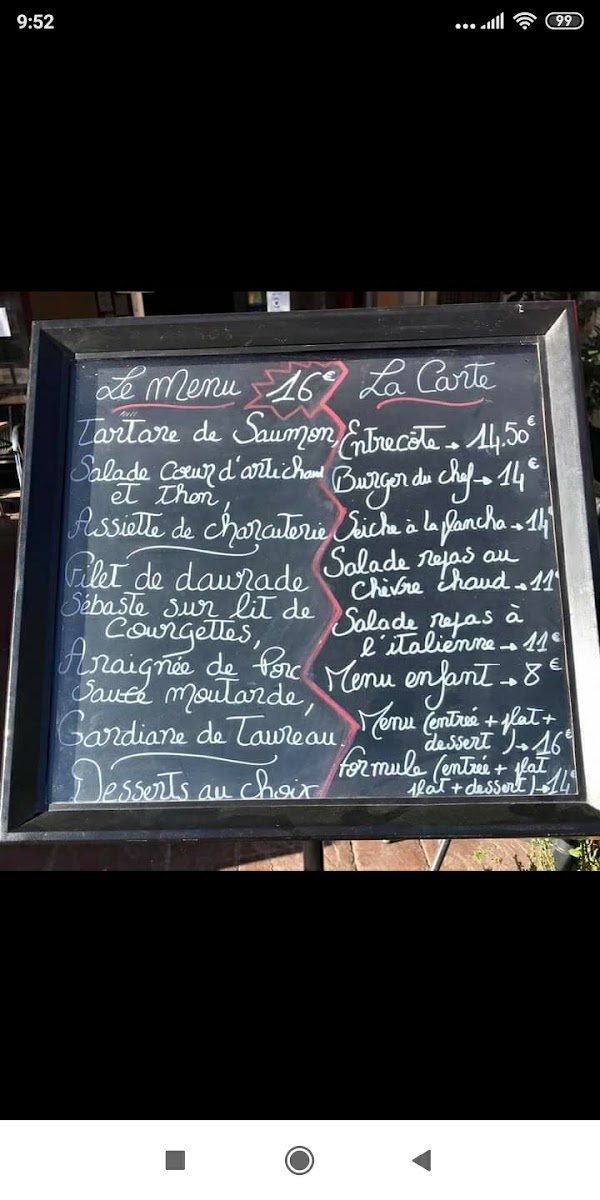 9:52
99
Le Menu 16€
Tartare de Saumon,
Salade Cœur d'artichaud
et Thon,
Assiette de charcuterie
Filet de daurade
Sébaste sur lit de
Courgettes,
Araignée de Porc
Sauce moutarde,
Gardiane de Taureau.
Desserts au choix
La Carte
Entrecôte → 14.50€
Burger du chef → 14€
Seiche à la plancha → 14€
Salade repas au
Chèvre chaud → 11€
Salade repas à
l'italienne → 11€
Menu enfant → 8€
Menu (entrée + plat +
dessert) → 16€
Formule (entrée + plat
plat + dessert) → 14€